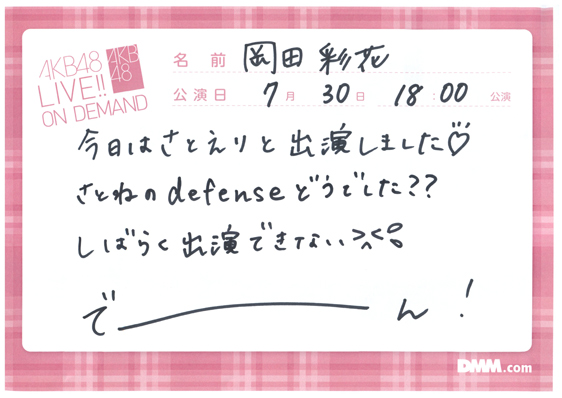 AKB48
LIVE!!
ON DEMAND
AKB
48
名前 岡田彩花
公演日 7月30日 18:00 公演
今日はさとえりと出演しました♡
さとねのdefenseどうでした??
しばらく出演できない><
で――――ん!
DMM.com